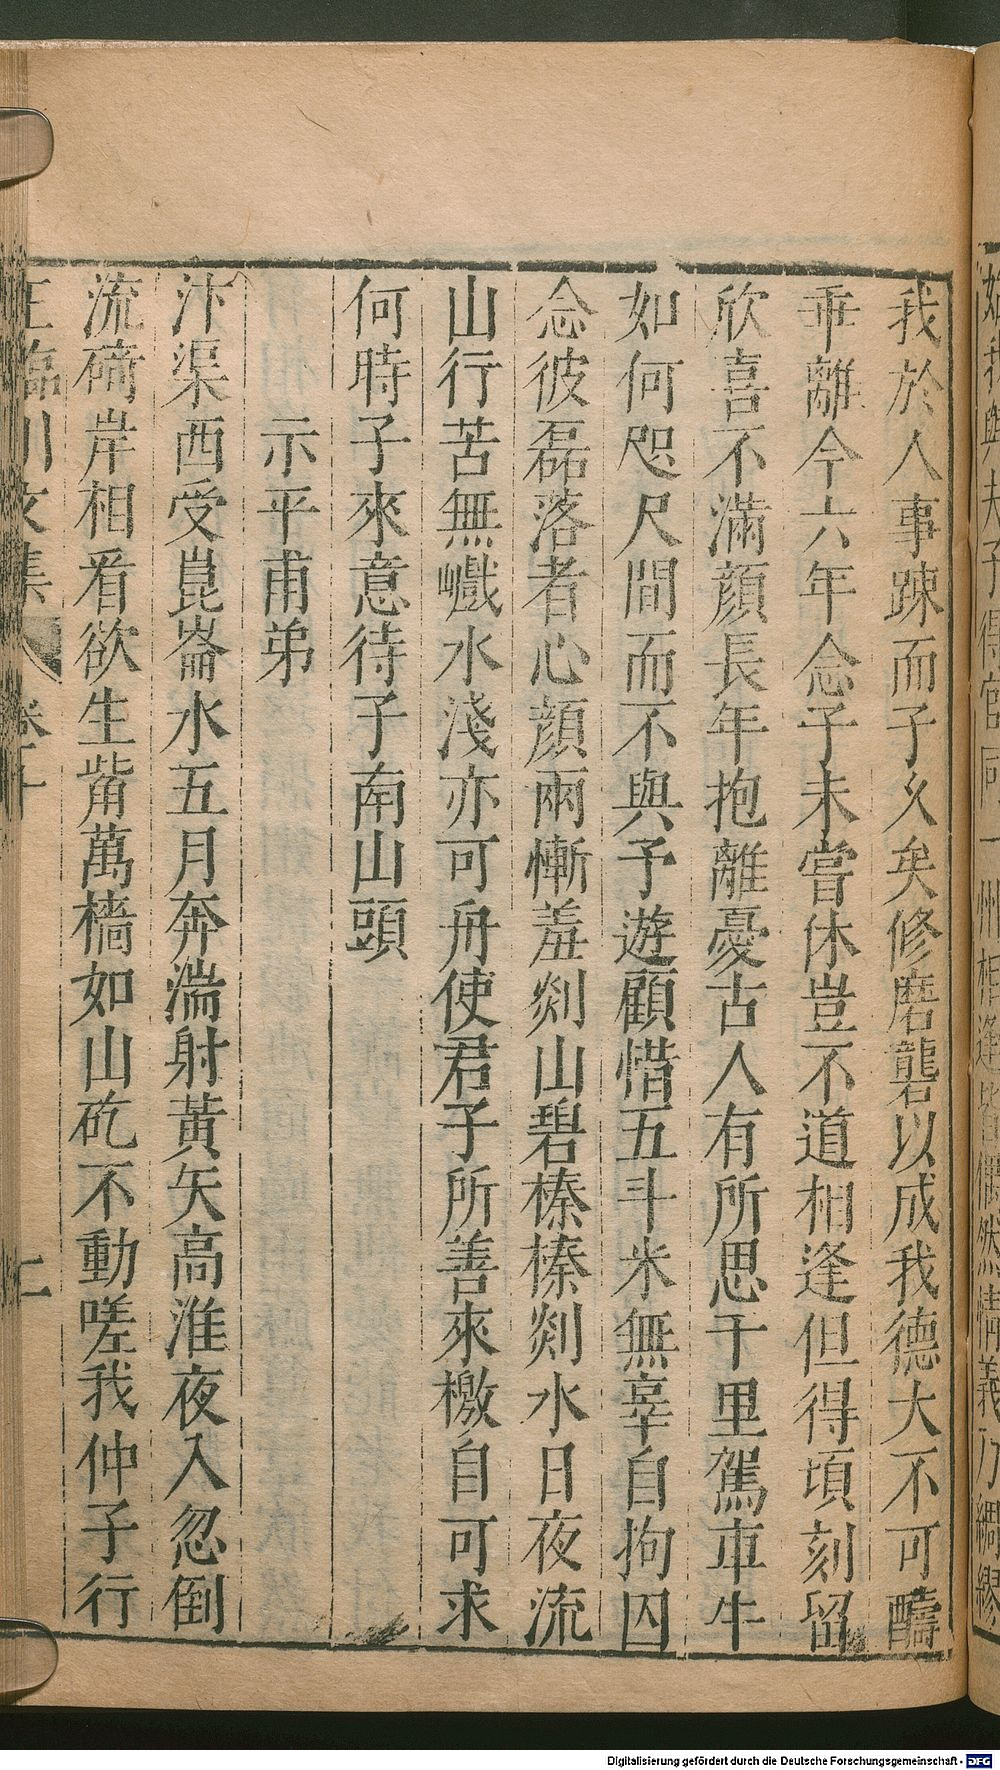 我於人事踈而子久矣修磨礲以成我德大不可醻
乖離今六年念子未嘗休豈不道相逢但得頃刻留
欣喜不滿顏長年抱離憂古人有所思千里駕車牛
如何咫尺間而不與予遊顧惜五斗米無辜自拘囚
念彼磊落者心顏兩慚羞剡山碧榛榛剡水日夜流
山行苦無巇水淺亦可舟使君子所善來檄自可求
何時子來意待子南山頭
示平甫弟
汴渠西受崑崙水五月奔湍射黃矢高淮夜入忽倒
流碕岸相看欲生觜萬檣如山矻不動嗟我仲子行
王臨川文集
Digitalisierung gefördert durch die Deutsche Forschungsgemeinschaft - DFG